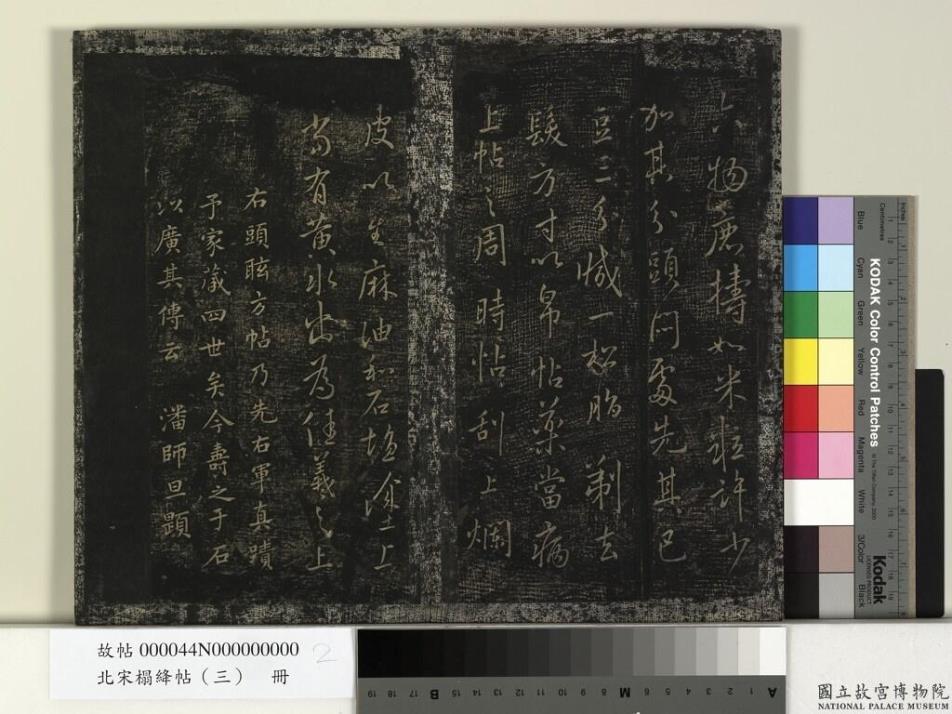 六物麄擣如米粒許少
加其分頭悶處先其巴
豆三分減一松脂剃去
髮方寸以帛帖藥當病
上帖之周時帖刮上爛
皮以生麻油和石塩塗上
當有黃水出為佳羲之上
右頭眩方帖乃先右軍真蹟
予家藏四世矣今壽之于石
以廣其傳云 潘師旦顯
故帖000044N000000000
2
北宋榻絳帖(三) 冊
國立故宮博物院
NATIONAL PALACE MUSEUM
KODAK Color Control Patches
Kodak
Inches
Centimetres
Blue
Cyan
Green
Yellow
Red
Magenta
White
3/Color
Black
A 1 2 3 4 5 6 M 8 9 10 11 12 13 14 15 B 17 18 19